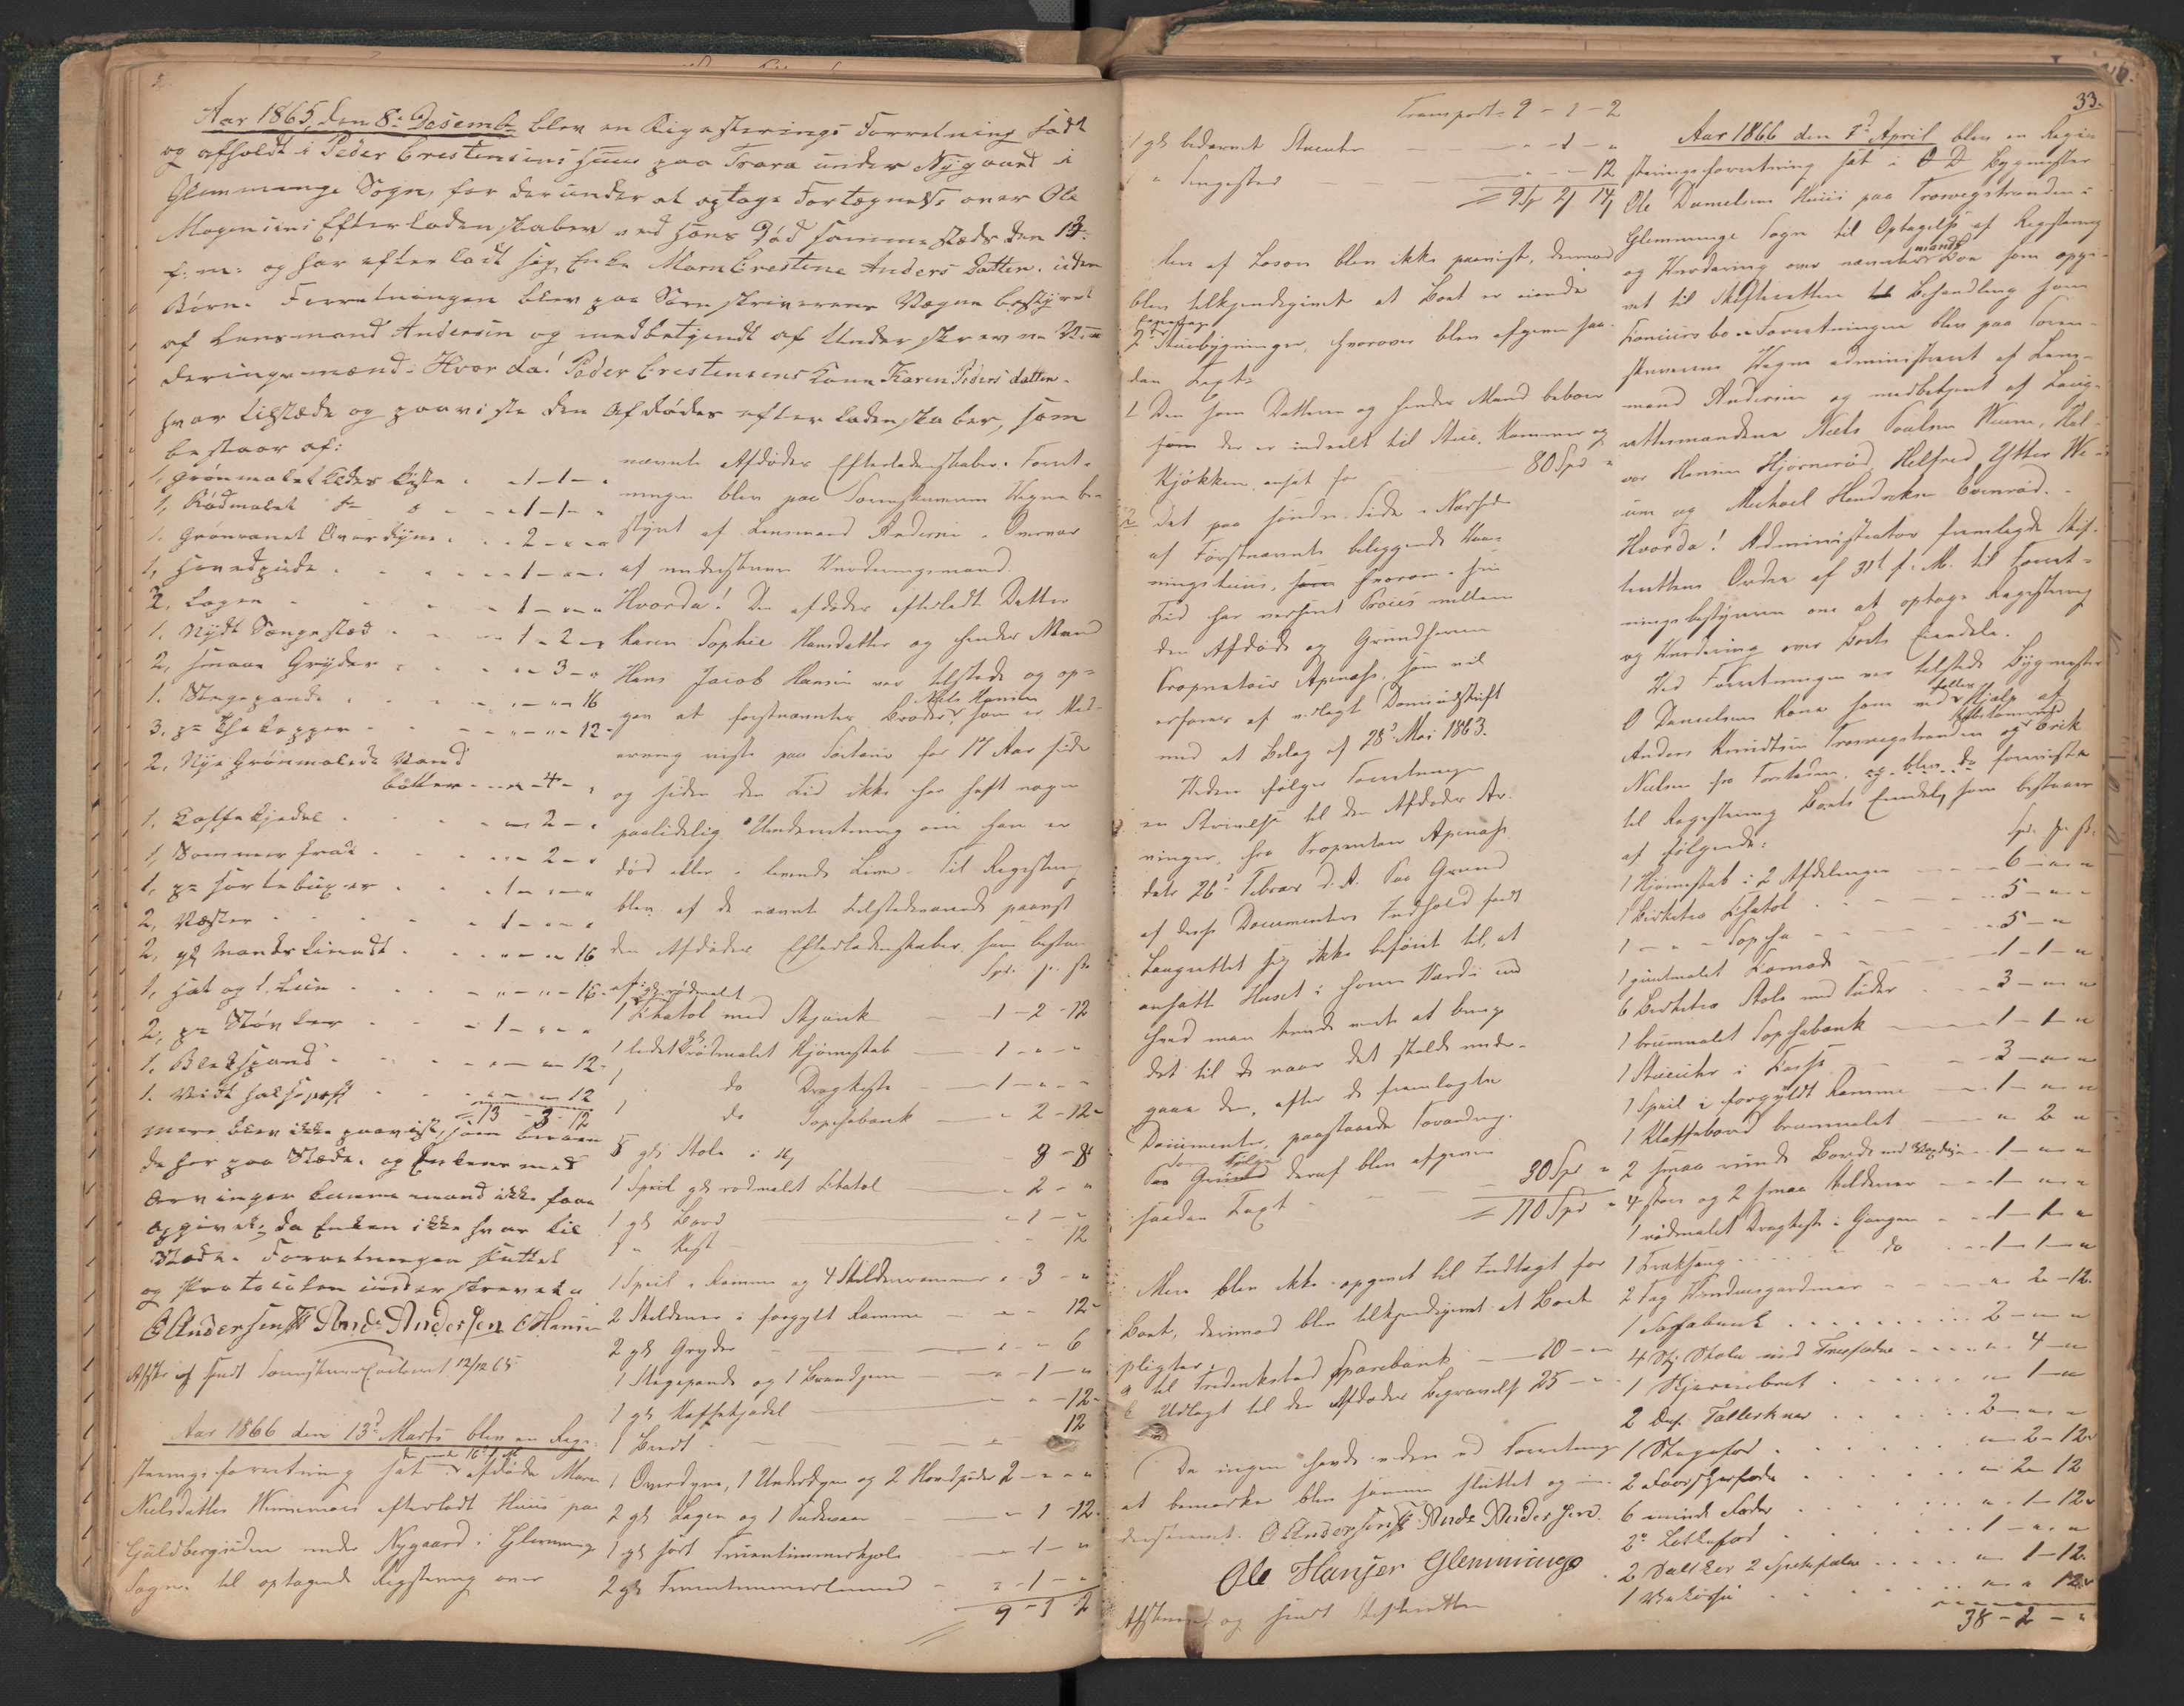 Aar 1865, den 8de Desembr blev en Rigesterings Forretning sadt
og afholdt i Peder Crestensens Huus paa Trara under Nygaard i
Glemminge Sogn, for derunder at optage Fortegnelse over Ole
Mogensens Efterladenskaber ved hans Død sammestæds den 13.
f. m. og har efterladt sig Enke Maren Crestine Anders Datter. uden
Børn. Forretningen blev paa Sorenskriverens Vægne bestyret
af Lensmand Andersen og medbetjendt af Underskrevne Vur
deringsmænd. Hvorda! Peder Crestensens Kone Karen Peders datter
var tilstæde og paaviste den Afdødes efterladenskaber, som
bestaar af:
1, Grønmalet Klædes Kiste . . 1 - 1 -
1, Rødmalet do . . 1 - 1 -
1, Overdyne . . 2 - " - "
1, Hovedpude . . . 1 - " -
2, Lagen . . . 1 - " - "
1. Nydt Sængested . . 1 - 2 - "
2, smaae Gryder . . . " - 3 - "
1. Stegepande . . . " - " - 16
3. pr Thekopper . . . " - " - 12
2, Nye Grønmalede Vand
bøtter - " - 4 - "
1. Kaffekjedel . . . " - 2 - "
1, Sommer frak . . . " - 2 - "
1, pr sorte buxer . . 1 - " - "
2, Væster . . . 1 - " - "
2, gl Mandslinnedt . . " - " - 16
1, Hat og 1 Lue . . " - " - 16
2, pr Støvler . . 1 - " - "
1. Blekspand . . " - " - 12
1. " - " - 12
= 13 - 3 - 12
mere blev ikke paavist, som
da her paa Stæde. og Enkens med
Arvinger kunne mand ikke faae
opgivet, da Enken ikke var til
Stæde. Forretningen sluttet
og Protocolen underskrevet
O Andersen Ands Andersen O Hansen
Afskr. og sendt Sorenskrivercontoret 12/12 65
Aar 1866 den 13de Marts blev en Regi-
streringsforretning sat i afdøde Maren
Nielsdatter efterladt Huus paa
Guldbergsiden under Nygaard i Glemminge
Sogn. til optagende Registrering over
nævnte Afdødes Efterladenskaber. Forret-
ningen blev paa Sorenskriverens Vegne be-
styret af Lensmand Andersen. Overvær
af underskrevne Vurderingsmænd.
Hvorda! Den afdødes efterladte Datter
Karen Sophie Hansdatter og hendes Mand
Hans Jacob Hansen var tilstede og op-
gav at førstnævntes Broder Niels Hansen som er Med-
arving reiste paa for 17 Aar siden
og siden den Tid ikke har haft nogen
paalidelig Underretning om han er
død eller i levende Live. Til Registering
blev af de nævnte tilstedeværende paavist
den Afdødes Efterladenskaber, som bestaar
af: Spd. s.
1 gl. rødmalt Chatol med Skjænk 1 - 2 - 12
1 gl rødmalet Hjørneskab 1 - " - "
1 do Dragkiste 1 - " - "
1 do Sophabænk " 2 - 12
8 gl Stole 3 - 8
1 Speil gl rødmalt Chatol 2 - "
1 gl Bord " 1 - "
1 " 12
1 Speil i Ramme og 4 Skilderirammer " 3 - "
2 Skilderier i forgylt Ramme " - 12
2 gl Gryder " - 6
1 Stegepande og 1 Brandjern " - 1 - "
1 gl Kaffekjedel " - 12
1 Bredt 12
1 Overdyne, 1 Underdyne og 2 Hovedpuder 2 - " - "
2 gl Lagen og 1 Pudevaar " 1 - 12
1 gl sort Fruentimmerkjole " 1 - "
2 gl Fruentimmerlinned " - 1 - "
9 - 1 2
33.
Transport 9 - 1 - 2
1 gl bedærvet Stueuhr " - 1 - "
1 " Sengested 12
= 9 Sp 2 14
Mere af Løsøre blev ikke paavist, derimod
blev tilkjendegivet at Boet er eiende
2de Stuebygninger, hvorover blev afgiven saa-
dan Taxt:
1 Den som Datteren og hendes Mand beboer
som der er inddeelt til Stue, Kammer og
Kjøkken, ansat for 80 Spd "
2 Det paa søndre Side
af Førstnævnte beliggende Vaa-
ningshuus, hvorom i sin
Tid har verseret Proces mellem
den Afdøde og Grundherren
Proprietair Apenæs, som vil
erfares af vedlagt Domsudskrift
med et Bilag af 28de Mai 1863.
Videre følger Forretningen
en Skrivelse til den Afdødes Ar-
vinger, fra Proprietair Apenæs
datr 26de Febrar d. A. Paa Grund
af disse Documenters Indhold fandt
Laugrettet sig ikke beføiet til, at
ansætte Huset i høiere Værdi end
hvad man kunde vente at bringe
det til naar det skulde ned-
gaae den, efter de fremlagte
Documenter, paastaaede Forandring.
Som Følge deraf blev afgiven
saadan Taxt 30 Spd "
= 110 Spd "
Mere blev ikke opgivet til Indtægt for
Boet, derimod blev tilkjendegivet at Boet
pligter:
a til Fredrikstad Sparebank 10 - "
b Udlagt til den Afdødes Begravelse 25 - "
Da ingen havde videre ved Forretning
at bemærke blev samme sluttet og un-
derskrevet. O Andersen Ands Andersen.
Ole Hansen Glemminge
Afskrevet og sendt Skifteretten
Aar 1866 den 7de April blev en Regi-
streringsforretning sat i O D Bygmester
Ole Danielsens Huus paa Trosvigstranden i
Glemminge Sogn til Optagelse af Registrering
og Vurdering over nævnte Mands Boe som opgi-
vet til Skifteretten til Behandling som
Concursbo. Forretningen blev paa Soren-
skriverens Vegne administreret af Lens-
mand Andersen og medbetjent af Laug-
rettesmændene Niels Poulsen Veum, Hal-
vor Hansen Hjørnerød, Helfred Ytter Ve-
um og Michael Hendriksen Evenrød.
Hvorda! Administrator fremlagde Skif-
terettens Ordre af 31te f. M. til Forret-
ningsbestyreren om at optage Registrering
og Vurdering over Boets Eiendele.
Ved Forretningen var tilstede Bygmester
O Danielsens Kone som ved Hjælp af
Anders Knudtsen Trosvigstranden og Erik
Nielsen fra og blev da foreviste
til Registrering Boets Eiendele, som bestaaer
af følgende: Spd. s.
1 Hjørneskab i 2 Afdelinger 6 - " - "
1 Birketræ Chatol 5 - " - "
1 - " - Sopha 5 - "
1 guulmalet Komode 1 - 1 - "
6 Birketræ Stole med Puder 3 - " - "
1 bruunmalet Sophabænk 1 - 1 - "
1 Stueuhr i Kasse 3 - " - "
1 Speil i forgyldt Ramme 1 - " - "
1 Klaffebord bruunmalet " 2 "
2 smaa runde Borde med 1 - " - "
4 store og 2 smaa Skilderier 1 - " - "
1 rødmalet Dragkiste i Gangen 1 - 1 - "
1 Trækseng do 1 - 1 - "
2 Fag Vinduesgardiner " 2 - 12
1 Sofabænk 2 - " - "
4 Stk Stole med " 4 - "
1 " 1 - "
2 Dus. Tallerkner 2 - " - "
1 Stegefad " 2 - 12
2 " 2 - 12
6 mindre Fader " 1 - 12
2 1 - " - "
2 " 1 - 12
1 " " 12
38 - 2 - "